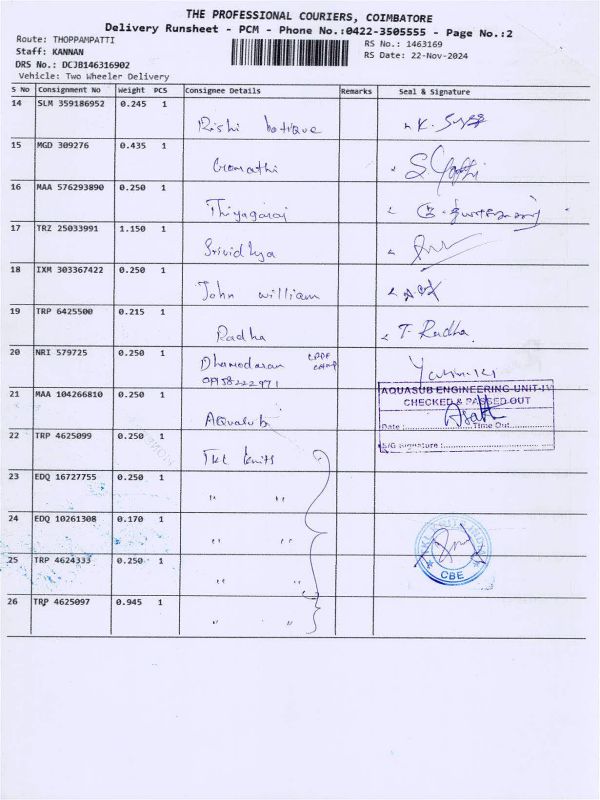 THE PROFESSIONAL COURIERS, COIMBATORE
Delivery Runsheet - PCM - Phone No.:0422-3505555 - Page No.:2
Route: THOPPAMPATTI
RS No.: 1463169
Staff: KANNAN
RS Date: 22-Nov-2024
DRS No.: DCJB146316902
Vehicle: Two Wheeler Delivery
S No Consignment No Weight PCS Consignee Details Remarks Seal & Signature
14 SLM 359186952 0.245 1
Rishi botique
15 MGD 309276 0.435 1
Gomathi
16 MAA 576293890 0.250 1
Thiyagaraj
17 TRZ 25033991 1.150 1
Srividhya
18 IXM 303367422 0.250 1
John william
19 TRP 6425500 0.215 1
Radha T. Radha
20 NRI 579725 0.250 1
Dhamodaran
09158222971
21 MAA 104266810 0.250 1
AQUASUB ENGINEERING-UNIT-IV
CHECKED & PASSED OUT
Aquasub
Date : Time Out
22 TRP 4625099 0.250 1
S/G signature :
Tkt knits
23 EDQ 16727755 0.250 1
" "
24 EDQ 10261308 0.170 1
" "
25 TRP 4624333 0.250 1
CBE
" "
26 TRP 4625097 0.945 1
" "